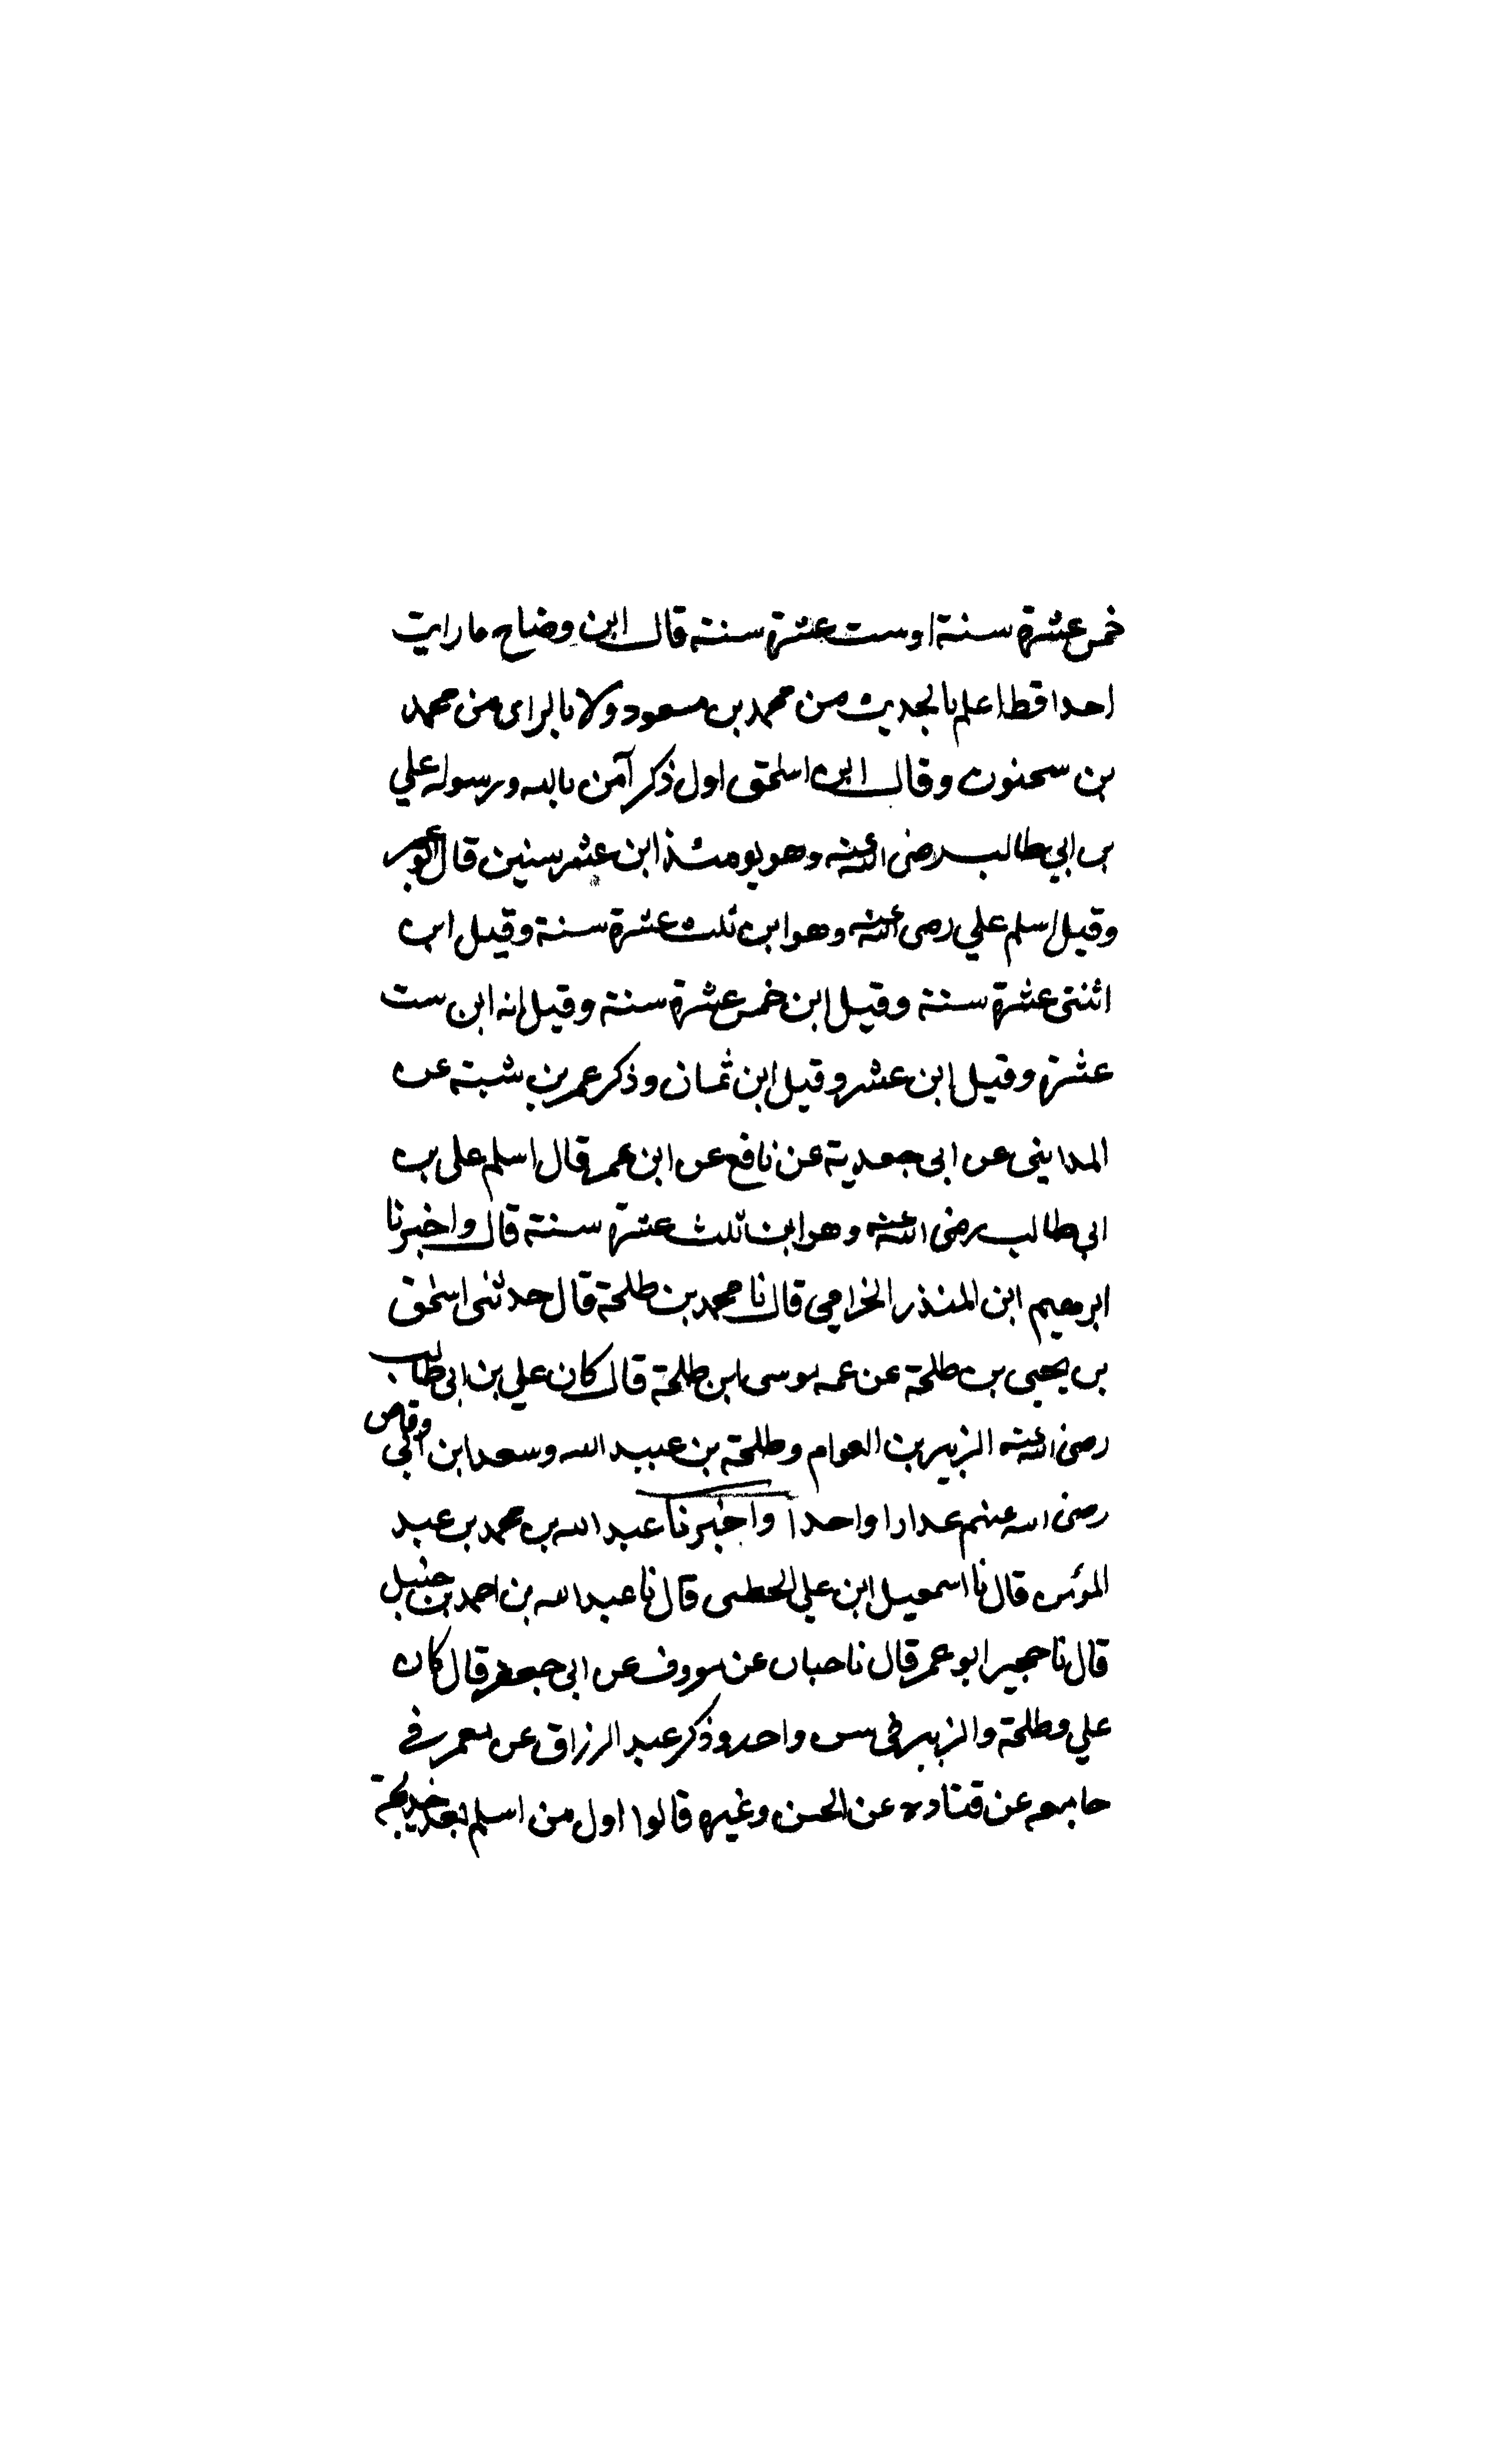 خمس عشرة سنة او ست عشرة سنة قال ابن وضاح ما رايت
احدا قط اعلم بالحديث من محمد بن مسعود ولا بالراى من محمد
بن سحنون وقال ابن اسلحق اول ذكر آمن بالله ورسوله علي
بن ابي طالب رضى الله عنه وهو يومئذ ابن عشر سنين قال ابو عمر
وقيل اسلم علي رضى الله عنه وهو ابن ثلث عشرة سنة وقيل ابن
اثنتى عشرة سنة وقيل ابن خمس عشرة سنة وقيل انه ابن ست
عشرة وقيل ابن عشر وقيل ابن ثمان وذكر عمر بن شبة عن
المداينى عن ابى جعدية عن نافع عن ابن عمر قال اسلم على بن
ابي طالب رضى الله عنه وهو ابن ثلث عشرة سنة قال واخبرنا
ابرهيم ابن المنذر الخزامي قال نا محمد بن طلحة قال حدثنى اسحٰق
بن يحيى بن طلحة عن عمه موسى ابن طلحة قال كان علي بن ابى طالب
رضى الله عنه الزبير بن العوام وطلحة بن عبيد الله وسعد ابن ابي وقاص
رضى الله عنهم عدادا واحدا واخبرنا عبد الله بن محمد بن عبد
المؤمن قال نا اسمعيل ابن علي الخطبى قال نا عبد الله بن احمد بن حنبل
قال نا حجير ابو عمر قال نا حبان عن معروف عن ابى جعفر قال كان
علي وطلحة والزبير فى سن واحد وذكر عبد الرزاق عن معمر في
جامعه عن قتادة عن الحسن وغيره قالوا اول من اسلم بعد خديجة